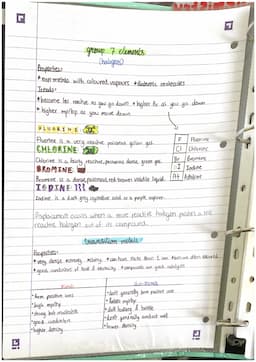 group 7 elements
(halogens)
Properties:
* non metals with coloured vapours * diatomic molecules
Trends:
* become less reactive as you go down * higher Ar as you go down
* higher mp/bp as you move down
FLUORINE
Fluorine is a very reactive, poisonous yellow gas.
CHLORINE
Chlorine is a fairly reactive, poisonous dense, green gas.
BROMINE
Bromine is a dense, poisonous, red-brown volatile liquid.
IODINE
Iodine is a dark grey crystalline solid or a purple vapour.
F Fluorine
Cl Chlorine
Br Bromine
I Iodine
At Astatine
Displacement occurs when a more reactive halogen pushes a less
reactive halogen out of its compound.
transition metals
Properties:
* very dense * strong * shiny
* good conductors of heat & electricity * compounds are good catalysts
* form positive ions
* high mp/bp
* strong but malleable
* good conductors
* higher density
* don't generally form positive ions
* lower mp/bp
* dull looking & brittle
* don't generally conduct well
* lower density